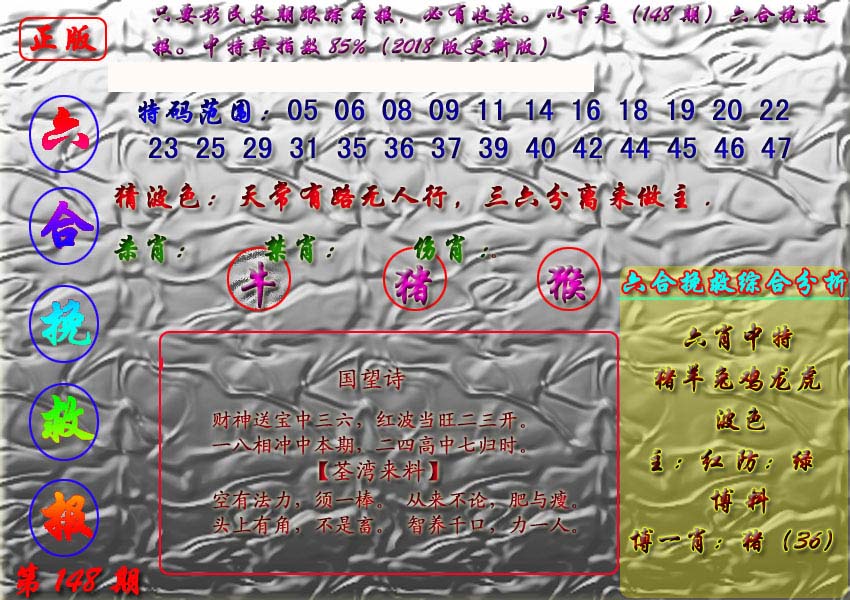 正版
只要彩民长期跟踪本报，必有收获。以下是（148期）六合挽救
报。中特率指数85%（2018版更新版）
六合挽救报
特码范围：05 06 08 09 11 14 16 18 19 20 22
23 25 29 31 35 36 37 39 40 42 44 45 46 47
猜波色：天常有路无人行，三六分离来做主.
杀肖： 禁肖： 伤肖：。
牛 猪 猴
国望诗
财神送宝中三六，红波当旺二三开。
一八相冲中本期，二四高中七归时。
【荃湾来料】
空有法力，须一棒。 从来不论，肥与瘦。
头上有角，不是畜。 智养千口，力一人。
六合挽救综合分析
六肖中特
猪羊兔鸡龙虎
波色
主：红防：绿
博料
博一肖：猪（36）
第148期